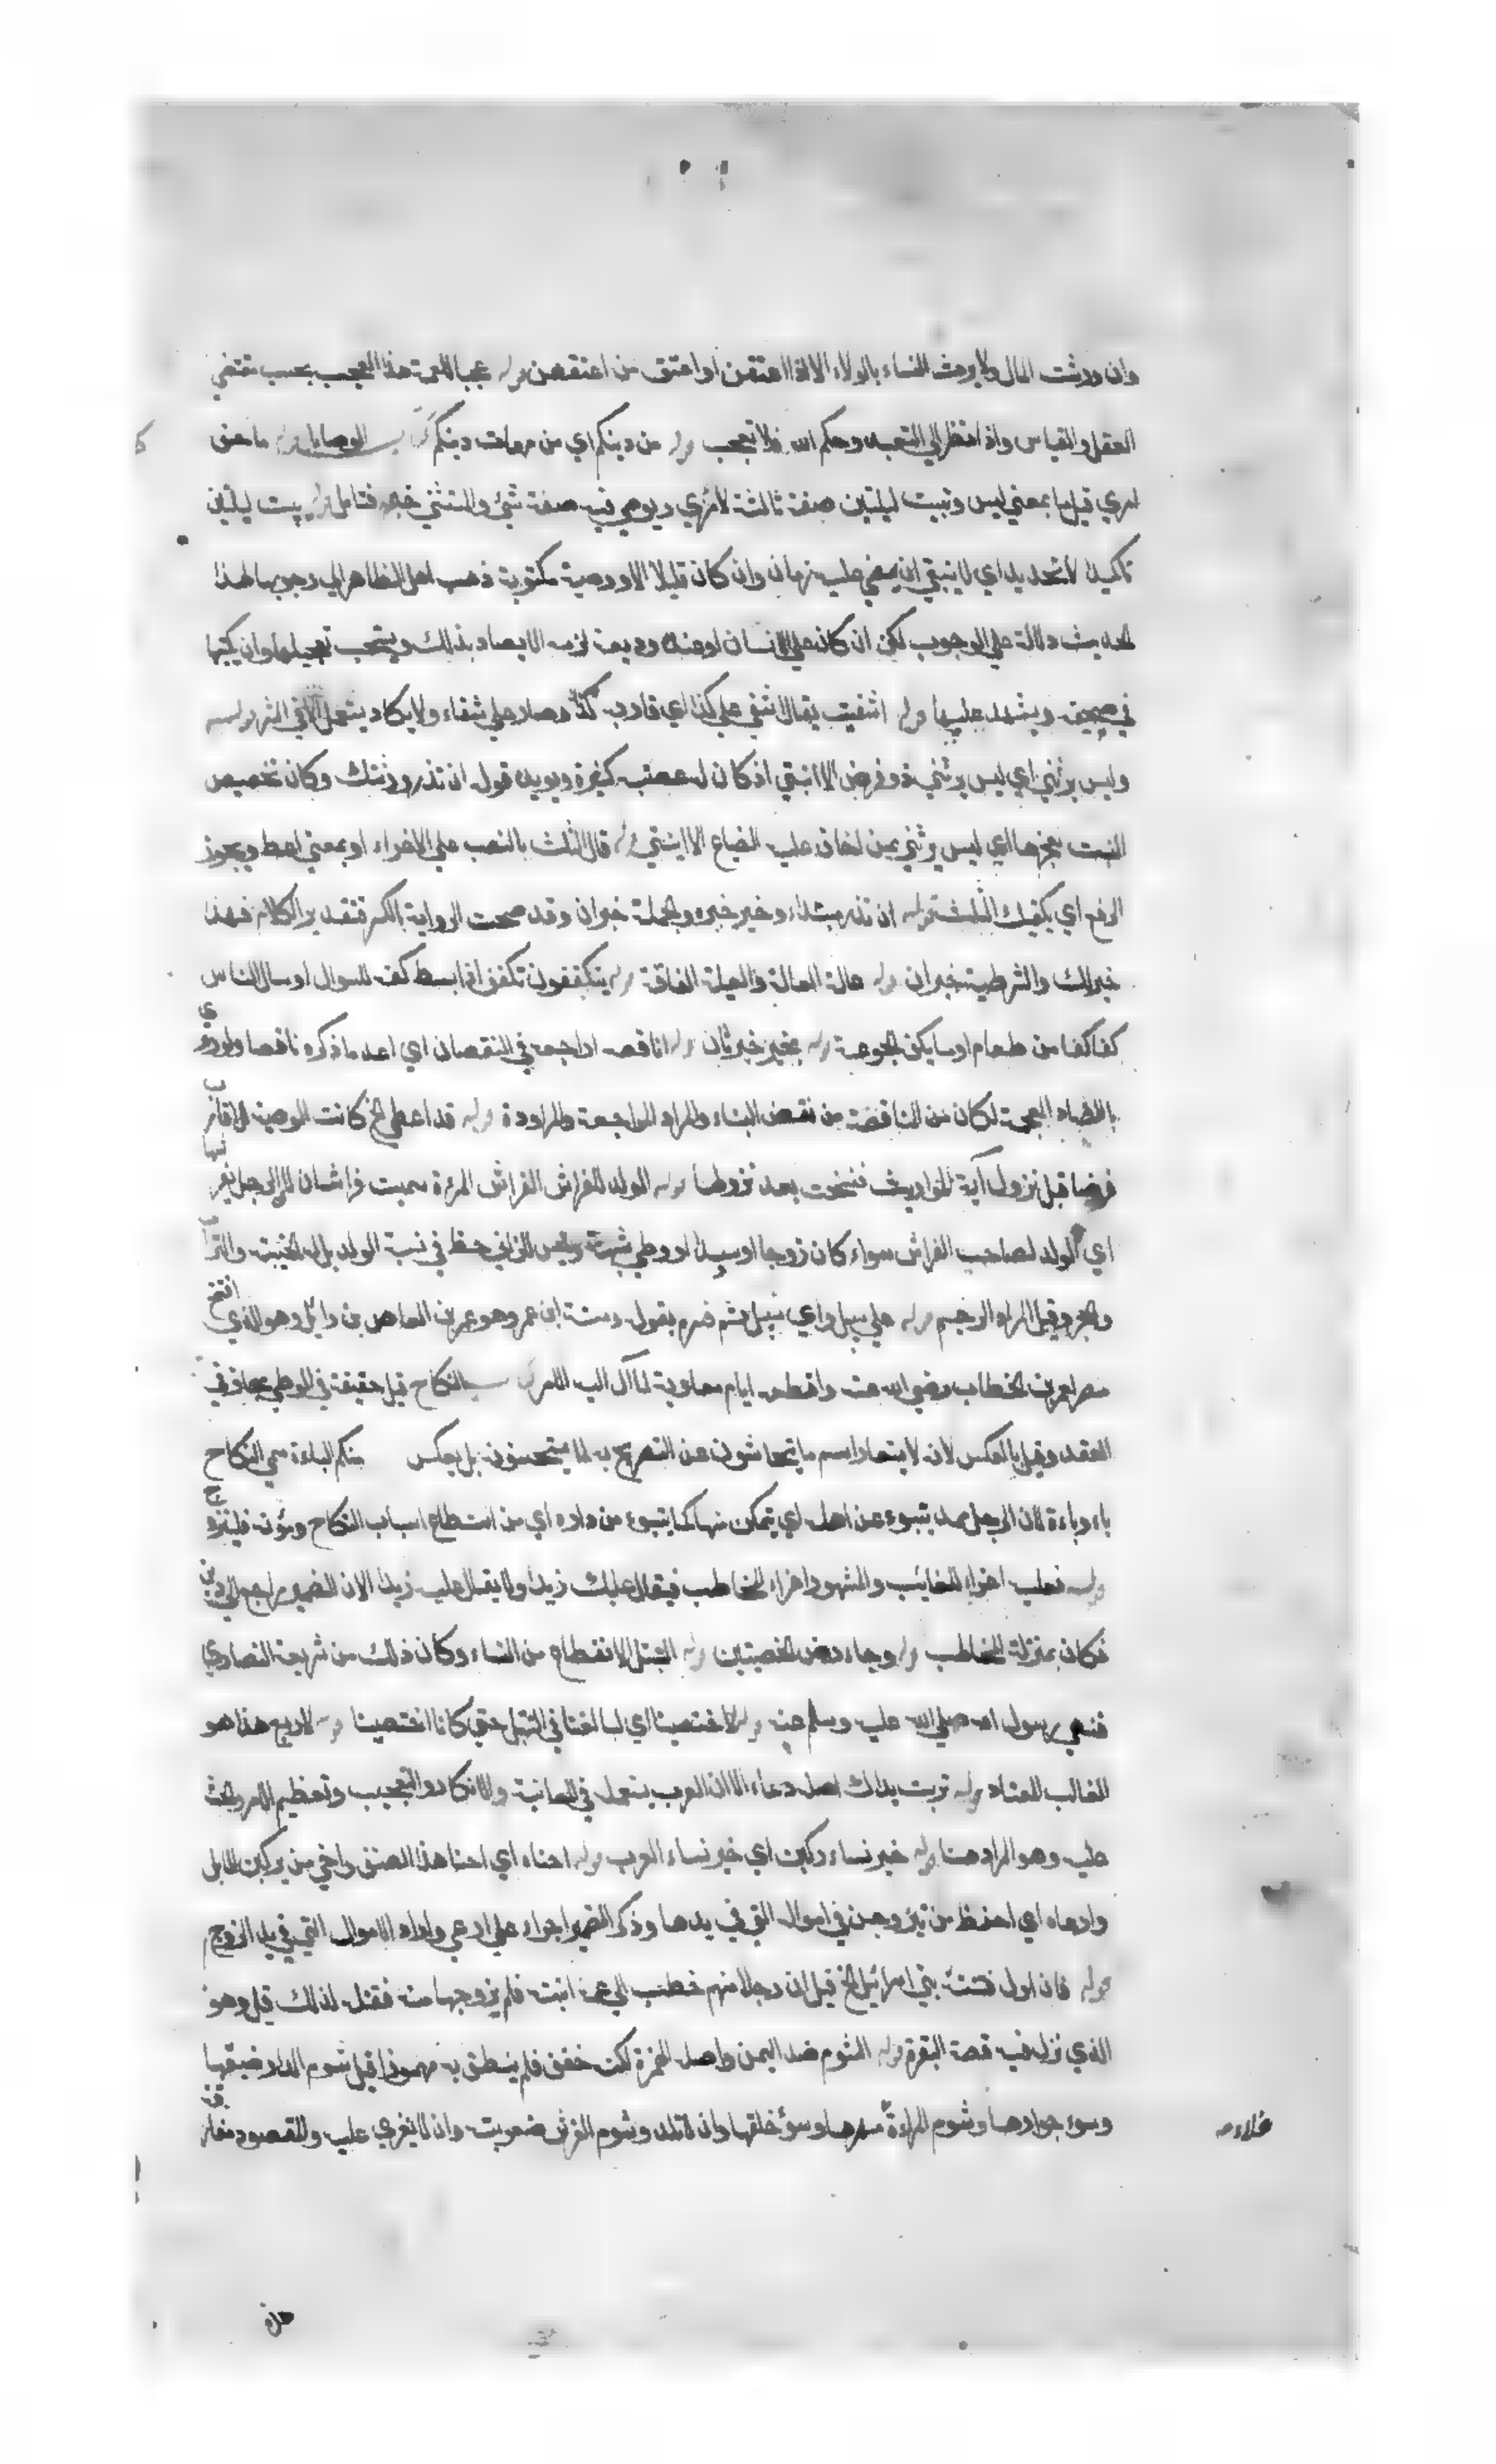 وان ورثت المال ولا يرث النساء بالولاء الا اذا اعتقن او اعتق من اعتقهن قوله عجبا للعمة هذا التعجب بحسب مقتضي
العقل والقياس واذا نظر الي التعبد وحكم الله فلا تعجب قوله من دينكم اي من مهمات دينكم كتاب الوصايا قوله ما معنى
امري قيل ما بمعني ليس ويبيت ليلتين صفة ثالثة لامري ويوصي فيه صفة شيء والمستثني خبره فتامل قوله يبيت ليلتين
تاكيد لا تحديد اي لا ينبقي ان يمضي عليه زمان وان كان قليلا الا ووصية مكتوبة ذهب اهل الظاهر الي وجوبها لهذا
الحديث دلالة علي الوجوب لكن ان كان علي الانسان او عنده وديعة لزمه الايصاء بذلك ويستحب تعجيلها وان يكتبها
في صحيفة ويشهد عليها قوله اشفيت يقال اشفي علي كذا اي قاربه وصار علي شفاء ولا يكاد يستعمل الا في الشر قوله
وليس يرثني اي ليس يرثني ذو فرض الا ابنتي اذ كان له عصبة كثيرة ويويده قوله ان تذر ورثتك وكان تخصيص
البنت لعجزها اي ليس يرثني ممن اخاف عليه الضياع الا ابنتي قوله قال الثلث بالنصب علي الاغراء او بمعني اعط ويجوز
الرفع اي يكفيك الثلث قوله ان تذر مبتداء وخير خبره والجملة خبر ان وقد صحت الرواية بالكسر فتقدير الكلام فهذا
خير لك والشرطية خبر ان قوله عالة العالة والعيلة الفاقة قوله يتكففون تكفف اذا بسط كفه للسوال او سال الناس
كفا كفا من طعام او ما يكف الجوعة قوله بخير خبر ثان قوله اناقصه اراجعه في النقصان اي اعد ما ذكره ناقصا ولو روي
بالضاد المعجمة لكان من المناقضة من نقض البناء والمراد المراجعة والمراودة قوله قد اعطي الخ كانت الوصية للاقارب
فرضا قبل نزول آية المواريث فنسخت بعد نزولها قوله الولد للفراش الفراش المرءة سميت فراشا لان الرجل يفترشها
اي الولد لصاحب الفراش سواء كان زوجا او سيدا او وطي شبهة وليس للزاني حظ في نسبة الولد بل له الخيبة والتراب
والحجر وقيل المراد الرجم قوله علي سبيل واي سبيل قوله ابن عمر وهو عمر بن العاص بن وايل وهو الذي افتتح
مصر لعمر بن الخطاب رضي الله عنه واقطعه ايام معاوية لما آل اليه الامر كتاب النكاح قيل حقيقة في الوطي مجاز في
العقد وقيل بالعكس لانه لا يستعار اسم ما يتحاشون عن التصريح به لما يستحسنونه بل يعكس منكم الباءة سمي النكاح
باء وباءة لان الرجل يتبوء عن اهله اي يتمكن منها كما يتبوء من داره اي من استطاع اسباب النكاح ومؤنه فليتزوج
قوله فعليه اغراء للغائب والمشهور اغراء المخاطب فيقال عليك زيدا ولا يقال عليه زيدا الا ان الضمير راجع الي من
فكان بمنزلة المخاطب قوله وجاء رض الخصيتين قوله التبتل الانقطاع من النساء وكان ذلك من شريعة النصاري
فنهي رسول الله صلي الله عليه وسلم عنه قوله لاختصينا اي لبالغنا في التبتل حتي كانا اختصينا قوله لاربع هذا هو
الغالب المعتاد قوله تربت يداك اصله دعاء الا ان العرب يستعمله في المعاتبة والانكار والتعجيب وتعظيم الامر والحث
عليه وهو المراد هنا قوله خير نساء ركبن اي خير نساء العرب قوله احناه اي احنا هذا الصنف واخي من يركبن الابل
وارعاه اي احفظ من تزوجهن في امواله التي في يدها وذكر الضمير اجراء علي ارعي واراد الاموال التي في يد الزوج
قوله فان اول فتنة بني اسرائيل الخ قيل ان رجلا منهم خطب الي عمه ابنته فلم يزوجها منه فقتله لذلك قيل وهو
الذي نزل فيه قصة البقرة قوله الشوم ضد اليمن واصله الهمزة لكنه خفف فلم ينطق به مهموزا قيل شوم الدار ضيقها
وسوء جوارها وشوم المراءة وسوء خلقها وان لا تلد وشوم الفرس صعوبته وان لا يغزي عليه والمقصود مفارقة
غلاء مهرها
هذه